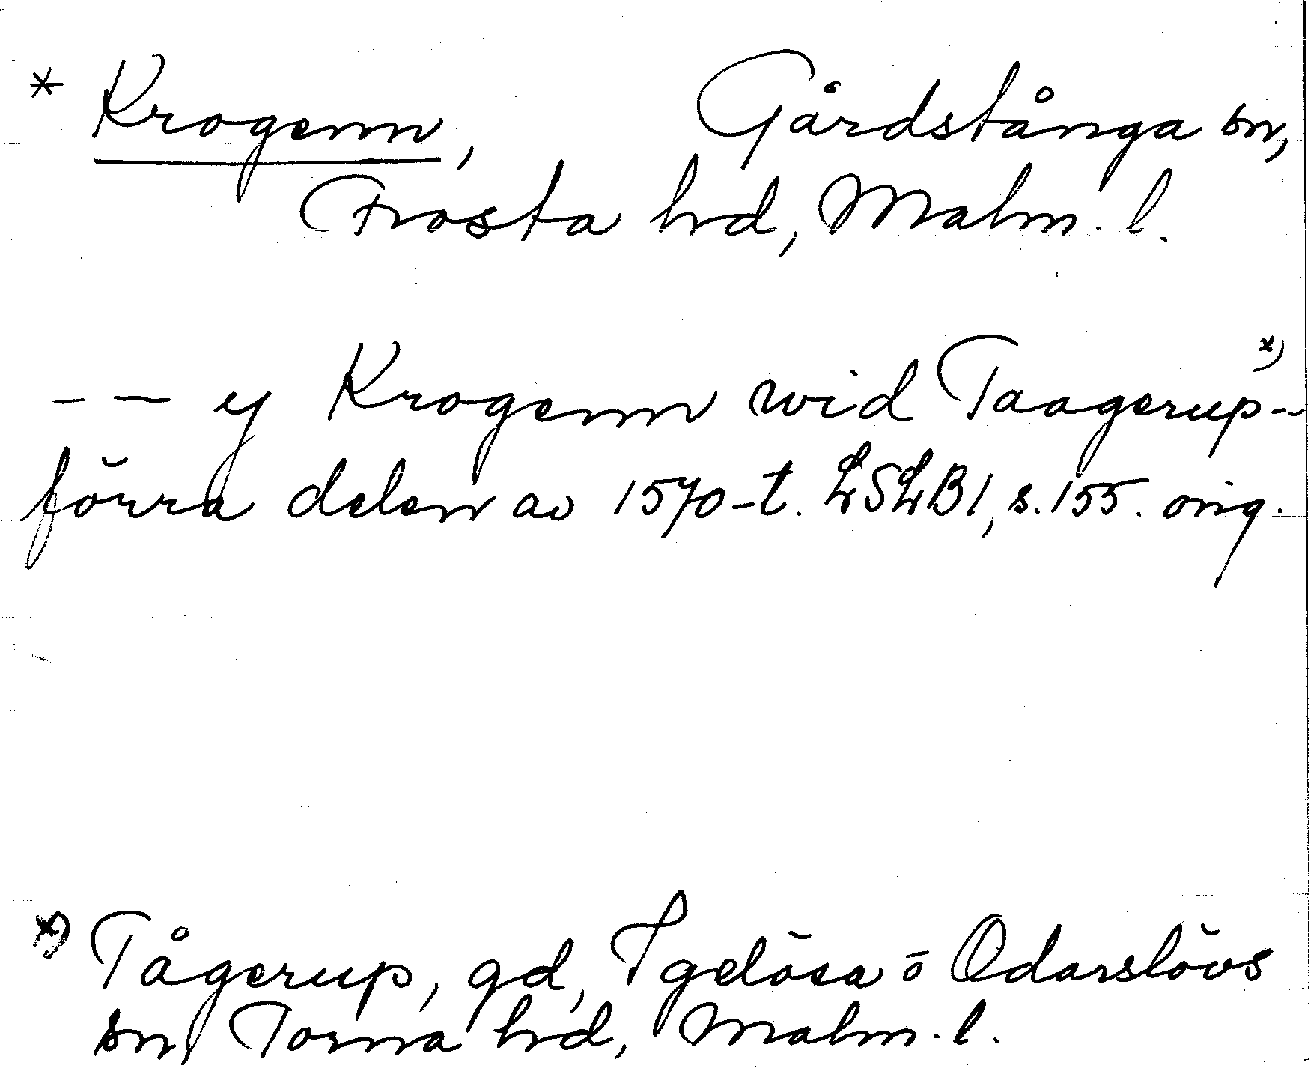 * Krogenn, Gårdstånga sn,
Frosta hrd, Malm. l.
-- y Krogenn wid Taagerup *) --
förra delen av 1570-t. LSLB1, s. 155. orig.
*) Tågerup, gd, Igelösa o Odarslövs
sn, Torna hrd, Malm. l.